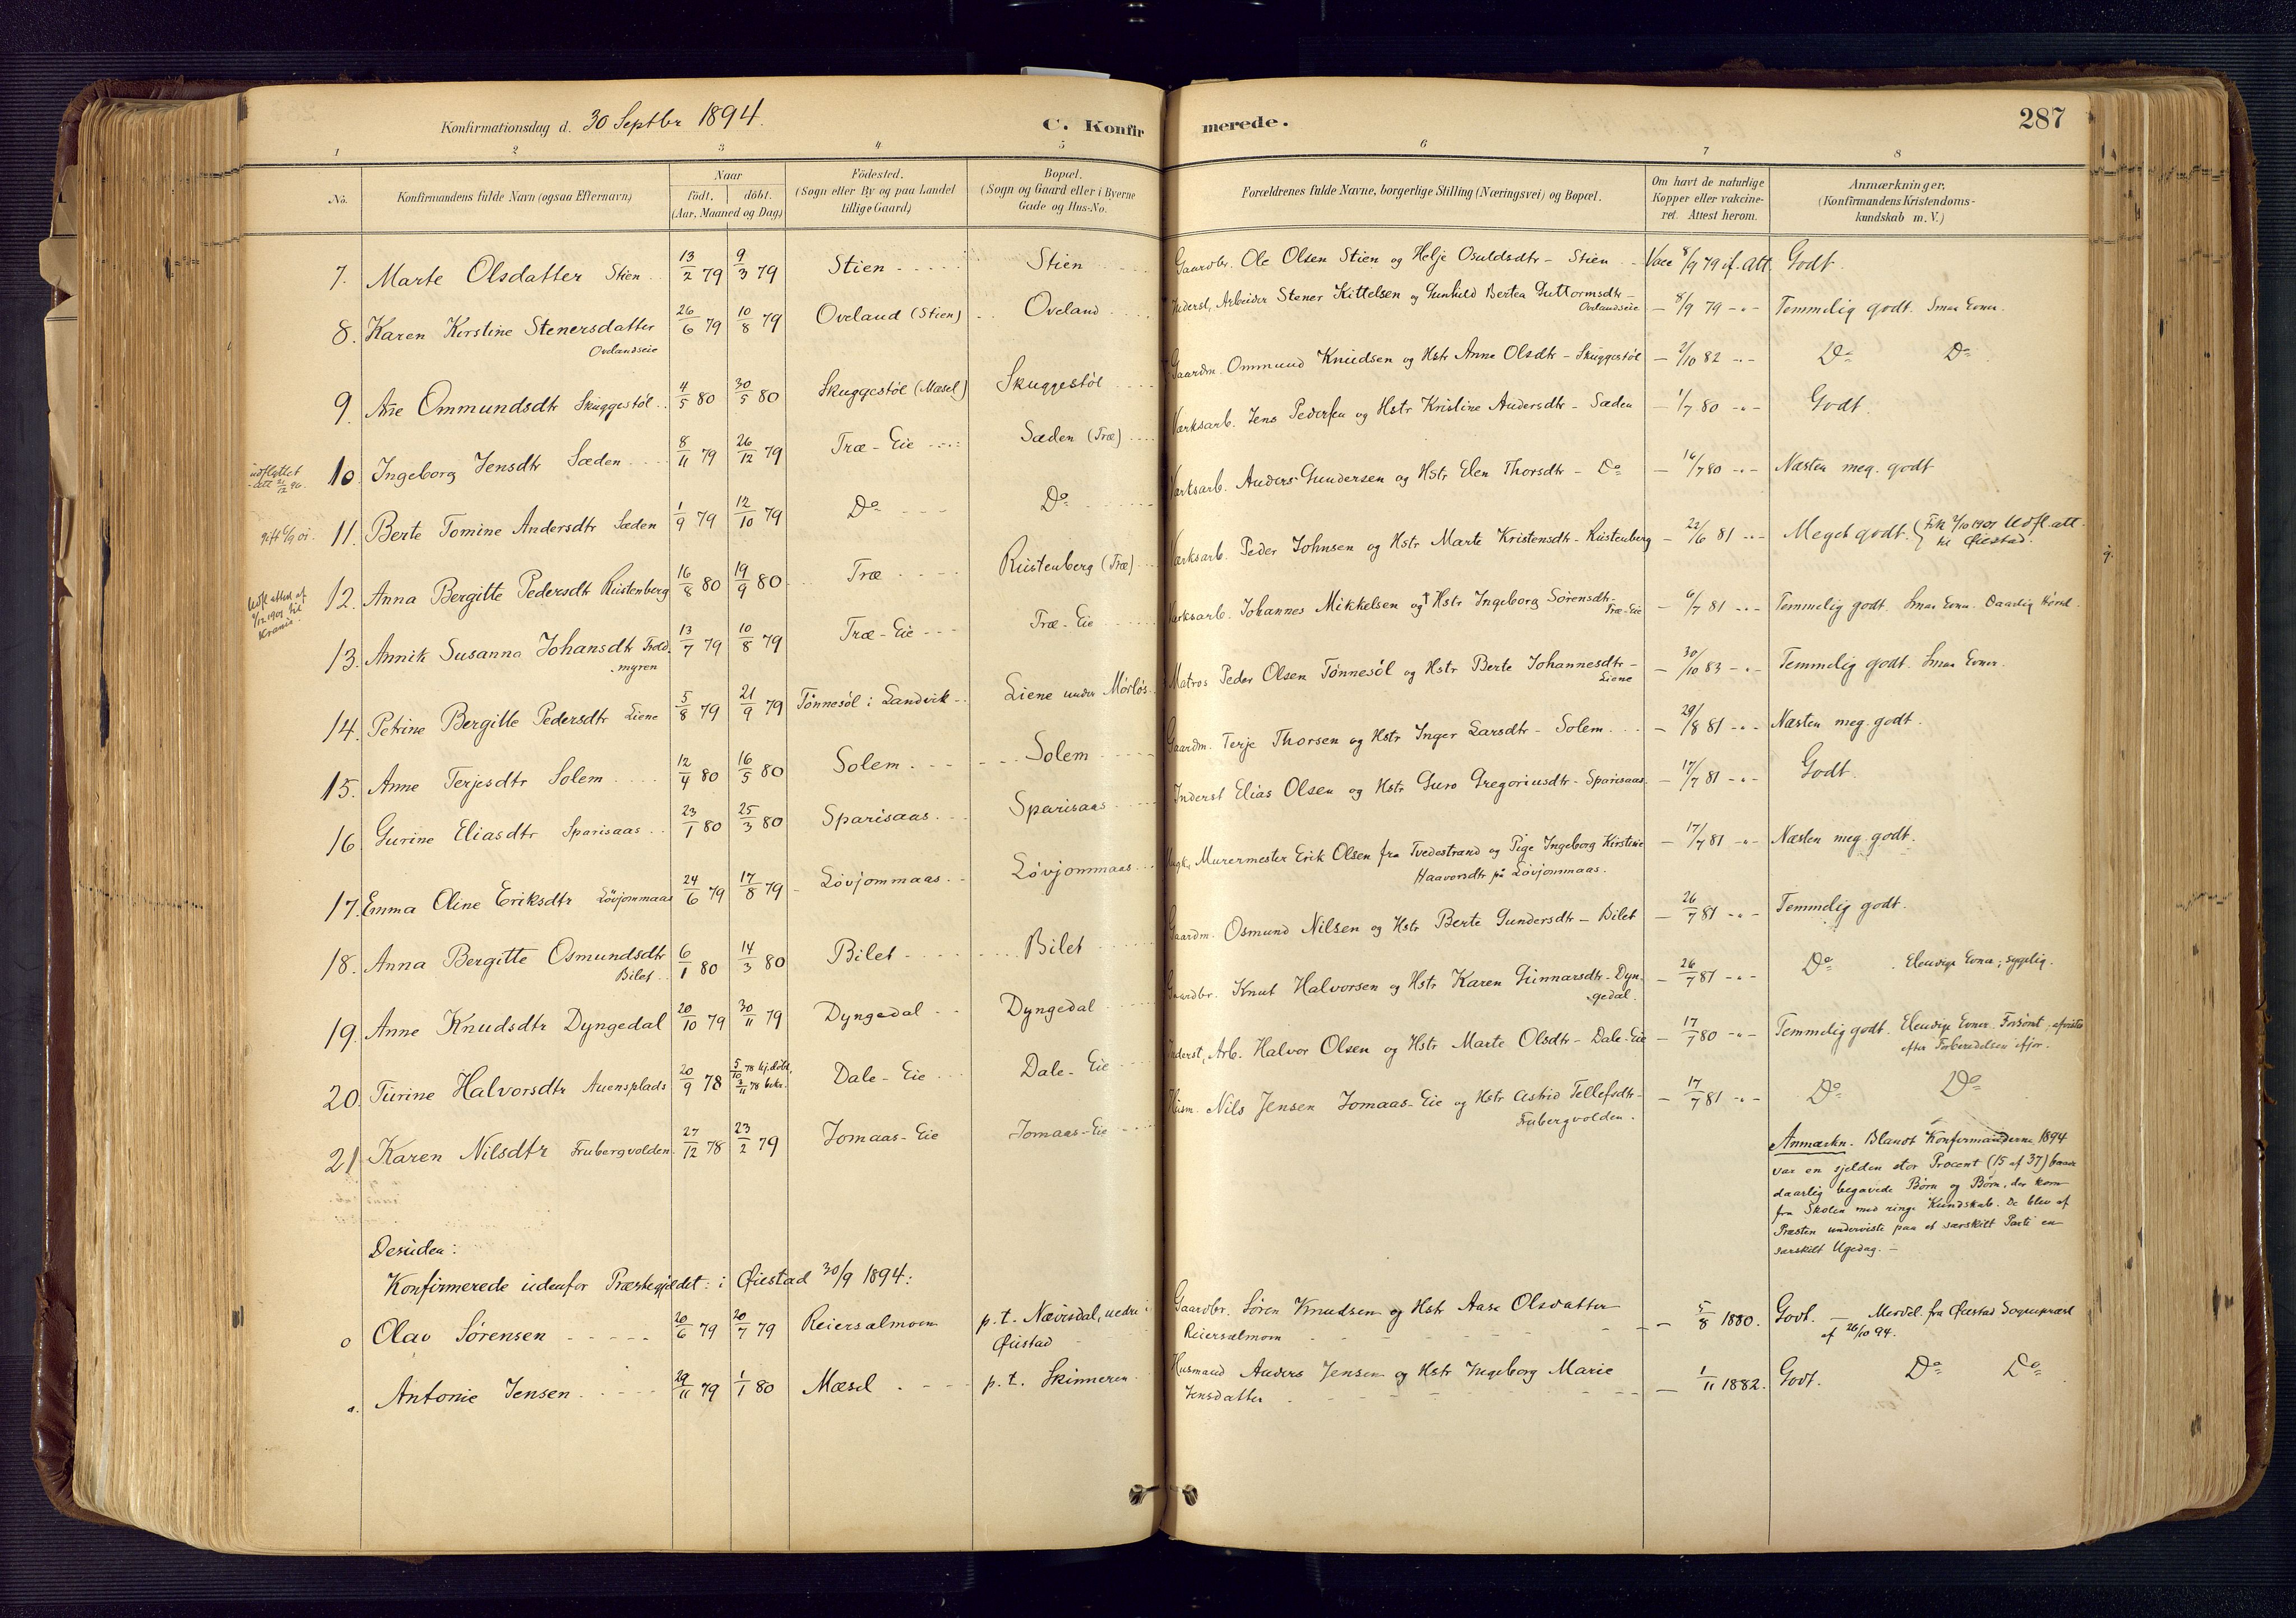 Konfirmationsdag d. 30 Septbr 1894.
C. Konfirmerede.
287
1 2 3 4 5 6 7 8
No.
Konfirmandens fulde Navn (ogsaa Efternavn)
Naar
födt. döbt.
(Aar, Maaned og Dag)
Födested.
(Sogn eller By og paa Landet
tillige Gaard)
Bopæl.
(Sogn og Gaard eller i Byerne
Gade og Hus-No.
Forældrenes fulde Navne, borgerlige Stilling (Næringsvei) og Bopæl.
Om havt de naturlige
Kopper eller vakcine-
ret. Attest herom.
Anmærkninger.
(Konfirmandens Kristendoms-
kundskab m. V.)
7. Marte Olsdatter Stien 13/2 79 9/3 79 Stien Stien Gaardbr. Ole Olsen Stien og Helje Osuldsdtr - Stien Vacc 8/9 79 if. Att. Godt.
8. Karen Kirstine Stenersdatter 26/6 79 10/8 79 Oveland (Stien) Oveland Inderst, Arbeider Stener Kittelsen og Gunhild Bertea Guttormsdtr - — 8/9 79 -"- Temmelig godt. Smaa Evner.
Ovelandseie
Ovelandseie
9. Ane Ommundsdtr Skuggestöl 4/5 80 30/5 80 Skuggestöl (Mæsel) Skuggestöl Gaardm. Ommund Knudsen og Hstr Anne Olsdtr - Skuggestöl — 2/10 82 -"- Do Do
10. Ingeborg Jensdtr Sæden 8/11 79 26/12 79 Træ-Eie Sæden (Træ) Værksarb. Jens Pedersen og Hstr Kristine Andersdtr - Sæden — 1/7 80 -"- Godt.
udflyttet
att 21/12 96.
11. Berte Tomine Andersdtr Sæden 1/9 79 12/10 79 Do Do Værksarb. Anders Gundersen og Hstr Elen Thorsdtr - Do — 16/7 80 -"- Næsten meg. godt
gift 6/9 01.
12. Anna Bergitte Pedersdtr Rustenberg 16/8 80 19/9 80 Træ Rustenberg (Træ) Værksarb. Peder Johnsen og Hstr Marte Kristensdtr - Rustenberg — 22/6 81 -"- Meget godt. (Fik 2/10 1901 Udfl.att.
til Øiestad.
Udfl. attest af
/12 1901 til
13. Annik Susanna Johansdtr Trold- 13/7 79 10/8 79 Træ-Eie Træ-Eie Værksarb. Johannes Mikkelsen og † Hstr Ingeborg Sørensdtr - — 6/7 81 -"- Temmelig godt. Smaa Evner. Daarlig Hørsel.
myren
Træ-Eie
14. Petrine Bergitte Pedersdtr Liene 5/8 79 21/9 79 Tönnesöl i Landvik Liene under Mörlös Matros Peder Olsen Tönnesöl og Hstr Berte Johannesdtr - — 30/10 83 -"- Temmelig godt. Smaa Evner.
Liene
15. Anne Terjesdtr Solem 12/4 80 16/5 80 Solem Solem Gaardm. Terje Thorsen og Hstr Inger Larsdtr - Solem — 29/8 81 -"- Næsten meg. godt.
16. Gurine Eliasdtr Sparisaas 23/1 80 25/3 80 Sparisaas Sparisaas Inderst Elias Olsen og Hstr Guro Gregoriusdtr - Sparisaas — 17/7 81 -"- Godt.
17. Emma Oline Eriksdtr Lövjommaas 24/6 79 17/8 79 Lövjommaas Lövjommaas Ungk. Murermester Erik Olsen fra Tvedestrand og Pige Ingeborg Kirstine — 17/7 81 -"- Næsten meg. godt.
Haavorsdtr på Lövjommaas.
18. Anna Bergitte Osmundsdtr 6/1 80 14/3 80 Bilet Bilet Gaardm. Osmund Nilsen og Hstr Berte Gundersdtr - Bilet — 26/7 81 -"- Temmelig godt.
Bilet
19. Anne Knudsdtr Dyngedal 20/10 79 30/11 79 Dyngedal Dyngedal Gaardbr. Knut Halvorsen og Hstr Karen Gunnarsdtr - Dyn- — 26/7 81 -"- Do Elendige Evner; sygelig.
gedal.
20. Turine Halvorsdtr Auensplads 20/9 78 5/10 78 hj.döbt, 3/11 78 bekr. Dale-Eie Dale-Eie Inderst, Arb. Halvor Olsen og Hstr Marte Olsdtr - Dale-Eie — 17/7 80 -"- Temmelig godt. Elendige Evner. Forsömt, afvist
efter Forberedelsen ifjor.
21. Karen Nilsdtr Frubergvolden 27/12 78 23/2 79 Jomaas-Eie Jomaas-Eie Husm. Nils Jensen Jomaas-Eie og Hstr Astrid Tellefsdtr - — 17/7 81 -"- Do Do
Frubergvolden.
Anmærkn. Blandt Konfirmanderne 1894
var en sjelden stor Procent (15 af 37)
daarlig begavede Börn og Börn, der kom
fra Skolen med ringe Kundskab. De blev af
Præsten underviste paa et særskilt Parti en
særskilt Ugedag. —
Desuden:
Konfirmerede udenfor Præstegjældet: i Øiestad 30/9 1894:
o Olav Sørensen 20/6 79 20/7 79 Reiersølmoen p.t. Nævisdal, nedre i Gaardbr. Søren Knudsen og Hstr Aase Olsdatter — 5/8 1880. Godt. — Meddel. fra Øiestad Sognepræst
Øiestad
Reiersølmoen
af 26/10 94.
a. Antonie Jensen 29/11 79 1/1 80 Mæsel p.t. Skinneren Husmand Anders Jensen og Hstr Ingeborg Marie — 1/11 1882. Godt. Do Do
Jensdatter